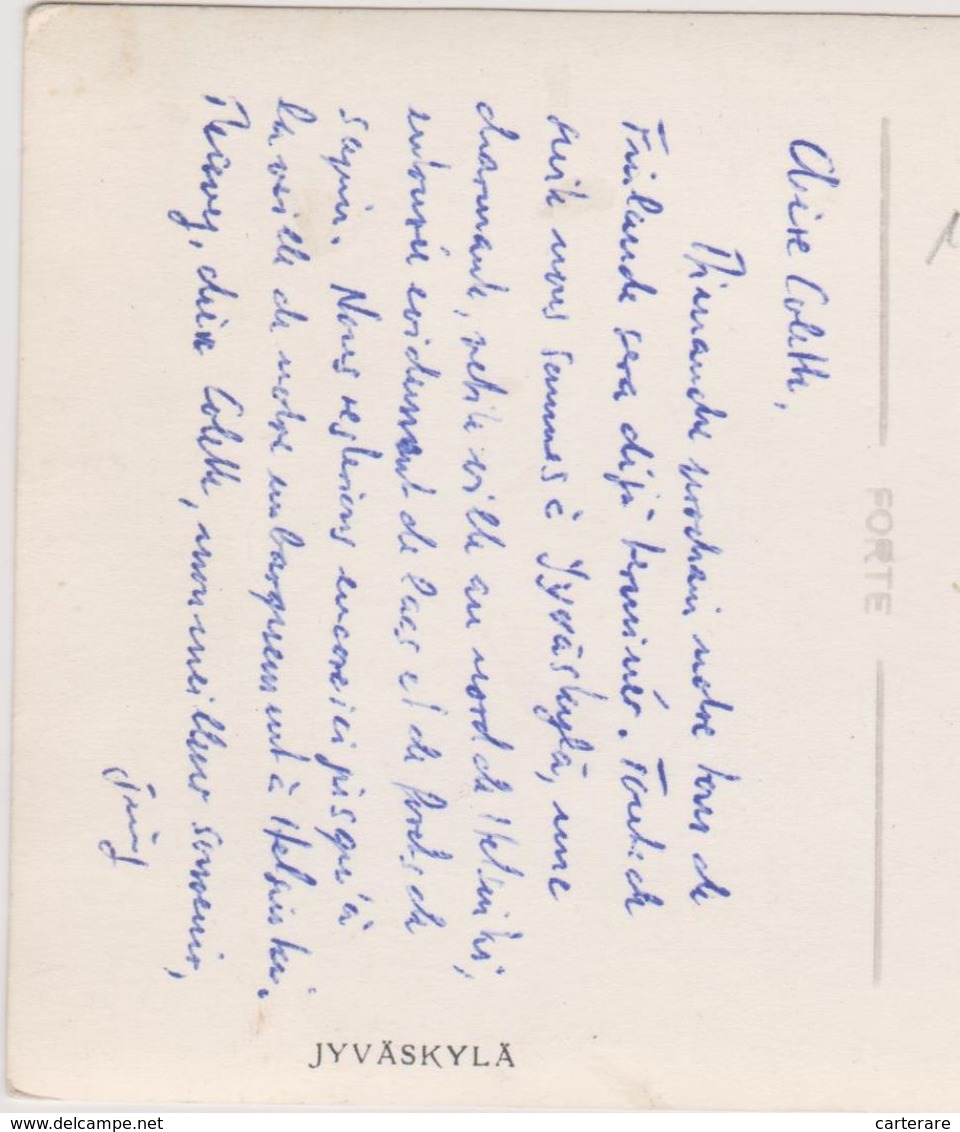 Chère Colette,
Dimanche prochain notre tour de
Finlande sera déjà terminér. Tout de
suite nous sommes à Jyväskylä, une
charmante, petite ville au nord de Helsinki,
entourée evidemment de lacs et de forêts de
sapin. Nous resterions encore ici jusqu'à
la veille de notre embarquement à Helsinki.
Recevez, chère Colette, mon meilleur souvenir,
FORTE
JYVÄSKYLÄ
www.delcampe.net
carterare